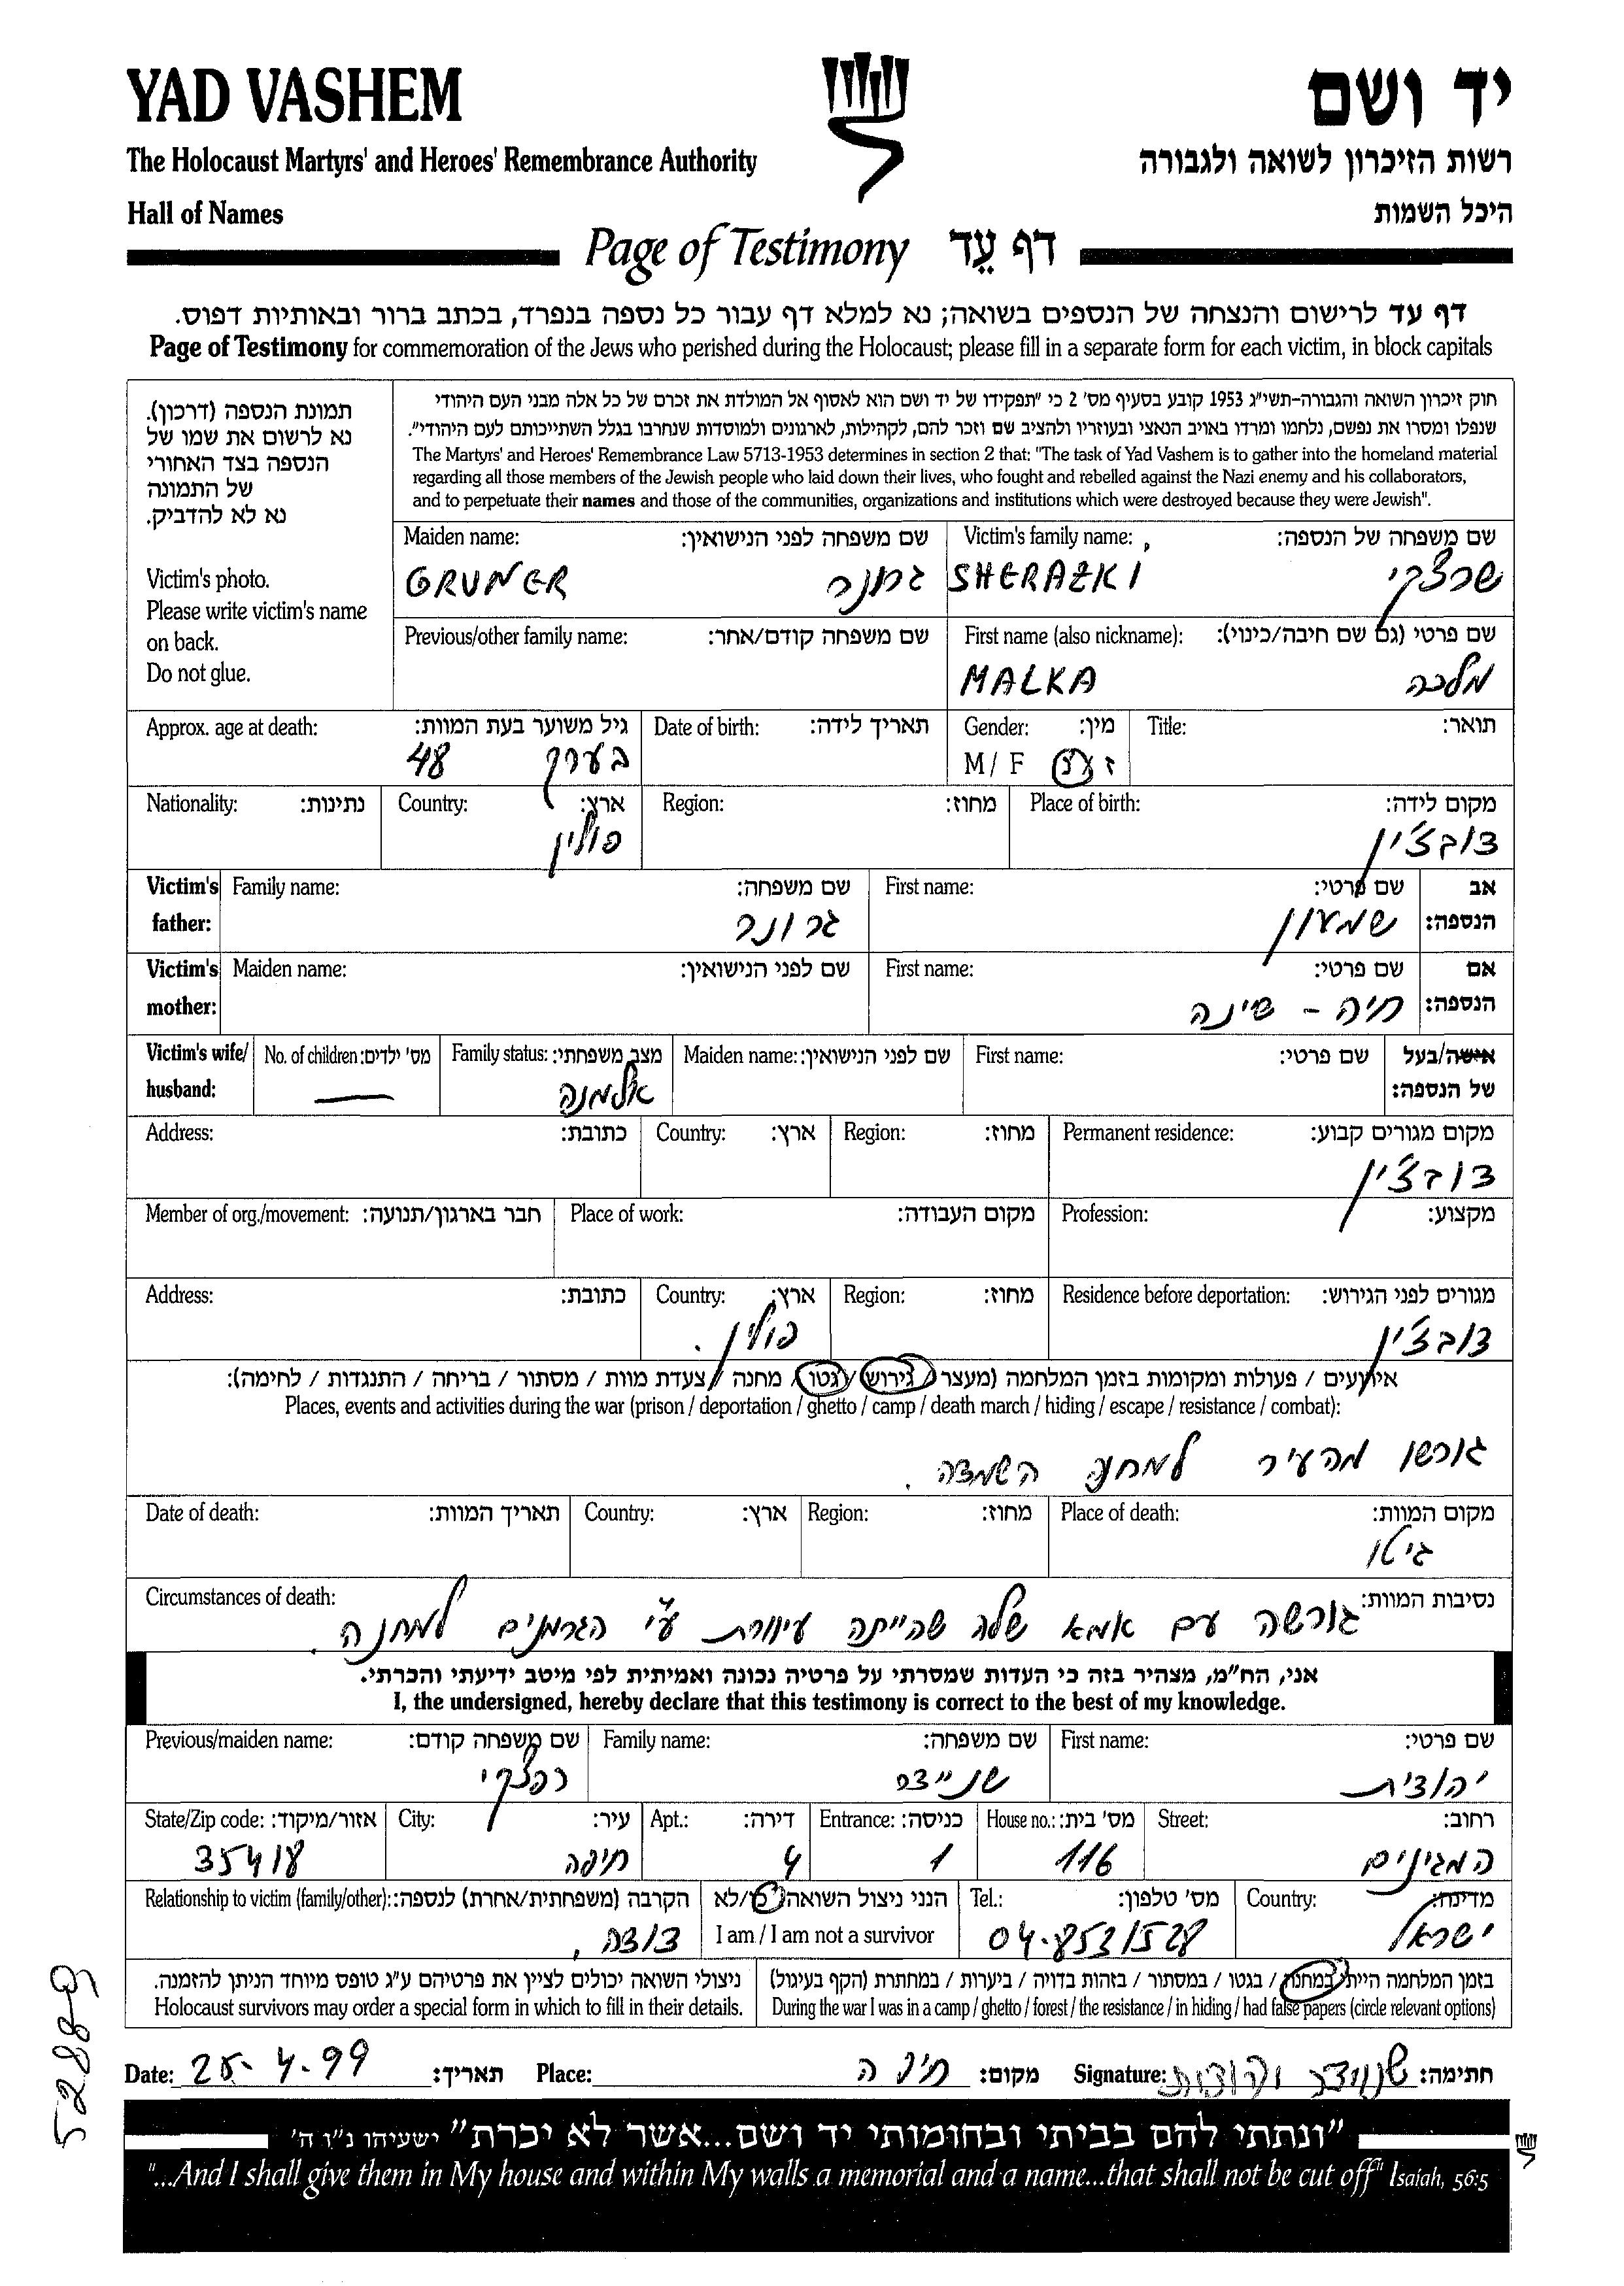 YAD VASHEM
יד ושם
The Holocaust Martyrs' and Heroes' Remembrance Authority
רשות הזיכרון לשואה ולגבורה
Hall of Names
היכל השמות
Page of Testimony דף עֵד
דף עד לרישום והנצחה של הנספים בשואה; נא למלא דף עבור כל נספה בנפרד, בכתב ברור ובאותיות דפוס.
Page of Testimony for commemoration of the Jews who perished during the Holocaust; please fill in a separate form for each victim, in block capitals
תמונת הנספה (דרכון).
נא לרשום את שמו של
הנספה בצד האחורי
של התמונה
נא לא להדביק.
Victim's photo.
Please write victim's name
on back.
Do not glue.
חוק זיכרון השואה והגבורה-תשי"ג 1953 קובע בסעיף מס' 2 כי "תפקידו של יד ושם הוא לאסוף אל המולדת את זכרם של כל אלה מבני העם היהודי
שנפלו ומסרו את נפשם, נלחמו ומרדו באויב הנאצי ובעוזריו ולהציב שם וזכר להם, לקהילות, לארגונים ולמוסדות שנחרבו בגלל השתייכותם לעם היהודי".
The Martyrs' and Heroes' Remembrance Law 5713-1953 determines in section 2 that: "The task of Yad Vashem is to gather into the homeland material
regarding all those members of the Jewish people who laid down their lives, who fought and rebelled against the Nazi enemy and his collaborators,
and to perpetuate their names and those of the communities, organizations and institutions which were destroyed because they were Jewish".
Maiden name: שם משפחה לפני הנישואין: Victim's family name: שם משפחה של הנספה:
GRUNER גרונר SHERAZKI שרצקי
Previous/other family name: שם משפחה קודם/אחר: First name (also nickname): שם פרטי (גם שם חיבה/כינוי):
MALKA מלכה
Approx. age at death: גיל משוער בעת המוות: Date of birth: תאריך לידה: Gender: מין: Title: תואר:
48 בערך M / F ז / נ
Nationality: נתינות: Country: ארץ: Region: מחוז: Place of birth: מקום לידה:
פולין דובצ'ין
Victim's father: Family name: שם משפחה: First name: שם פרטי: אב הנספה:
גרונר שמעון
Victim's mother: Maiden name: שם לפני הנישואין: First name: שם פרטי: אם הנספה:
חיה - שינה
Victim's wife/ husband: No. of children: מס' ילדים: Family status: מצב משפחתי: Maiden name: שם לפני הנישואין: First name: שם פרטי: אישה/בעל של הנספה:
אלמנה
Address: כתובת: Country: ארץ: Region: מחוז: Permanent residence: מקום מגורים קבוע:
דובצ'ין
Member of org./movement: חבר בארגון/תנועה: Place of work: מקום העבודה: Profession: מקצוע:
Address: כתובת: Country: ארץ: Region: מחוז: Residence before deportation: מגורים לפני הגירוש:
פולין. דובצ'ין
אירועים / פעולות ומקומות בזמן המלחמה (מעצר / גירוש / גטו / מחנה / צעדת מוות / מסתור / בריחה / התנגדות / לחימה):
Places, events and activities during the war (prison / deportation / ghetto / camp / death march / hiding / escape / resistance / combat):
גורשו מהעיר למחנה השמדה.
Date of death: תאריך המוות: Country: ארץ: Region: מחוז: Place of death: מקום המוות:
גיטו
Circumstances of death: נסיבות המוות:
גורשה עם אמא שלה שהייתה עיוורת ע"י הגרמנים למחנה.
אני, הח"מ, מצהיר בזה כי העדות שמסרתי על פרטיה נכונה ואמיתית לפי מיטב ידיעתי והכרתי.
I, the undersigned, hereby declare that this testimony is correct to the best of my knowledge.
Previous/maiden name: שם משפחה קודם: Family name: שם משפחה: First name: שם פרטי:
שניידר יהודית
State/Zip code: אזור/מיקוד: City: עיר: Apt.: דירה: Entrance: כניסה: House no.: מס' בית: Street: רחוב:
35418 חיפה 4 1 116 המגינים
Relationship to victim (family/other): הקרבה (משפחתית/אחרת) לנספה: הנני ניצול השואה כן/לא Tel.: מס' טלפון: Country: מדינה:
דודה, I am / I am not a survivor 04-8531528 ישראל
ניצולי השואה יכולים לציין את פרטיהם ע"ג טופס מיוחד הניתן להזמנה. בזמן המלחמה הייתי במחנה / בגטו / במסתור / בזהות בדויה / ביערות / במחתרת (הקף בעיגול)
Holocaust survivors may order a special form in which to fill in their details. During the war I was in a camp / ghetto / forest / the resistance / in hiding / had false papers (circle relevant options)
Date: 25-4-99 תאריך: Place: חיפה מקום: Signature: שניידר יהודית חתימה:
52889
"ונתתי להם בביתי ובחומותי יד ושם...אשר לא יכרת" ישעיהו נ"ו ה'
"...And I shall give them in My house and within My walls a memorial and a name...that shall not be cut off" Isaiah, 56:5